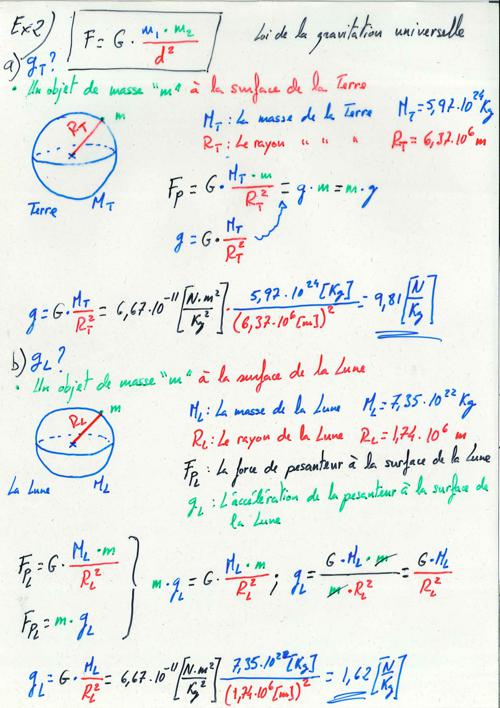 Ex2) F = G · m₁ · m₂ / d² Loi de la gravitation universelle
a) g_T ?
• Un objet de masse "m" à la surface de la Terre
R_T m M_T : La masse de la Terre M_T = 5,97·10²⁴ Kg
R_T : Le rayon " " " R_T = 6,37·10⁶ m
F_P = G · M_T · m / R_T² = g · m = m · g
Terre M_T
g = G · M_T / R_T²
g = G · M_T / R_T² = 6,67·10⁻¹¹ [N·m² / Kg²] · 5,97·10²⁴ [Kg] / (6,37·10⁶ [m])² = 9,81 [N / Kg]
b) g_L ?
• Un objet de masse "m" à la surface de la Lune
R_L m M_L : La masse de la Lune M_L = 7,35·10²² Kg
R_L : Le rayon de la Lune R_L = 1,74·10⁶ m
F_PL : La force de pesanteur à la surface de la Lune
La Lune M_L
g_L : L'accélération de la pesanteur à la surface de
la Lune
F_PL = G · M_L · m / R_L²
m · g_L = G · M_L · m / R_L² ; g_L = G · M_L · m / m · R_L² = G · M_L / R_L²
F_PL = m · g_L
g_L = G · M_L / R_L² = 6,67·10⁻¹¹ [N·m² / Kg²] 7,35·10²² [Kg] / (1,74·10⁶ [m])² = 1,62 [N / Kg]